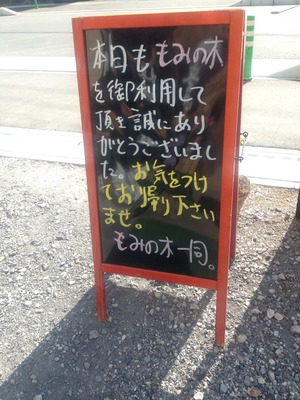 本日ももみの木
を御利用して
頂き誠にあり
がとうございまし
た。お気をつけ
ており帰り下さい
ませ。
もみの木一同。